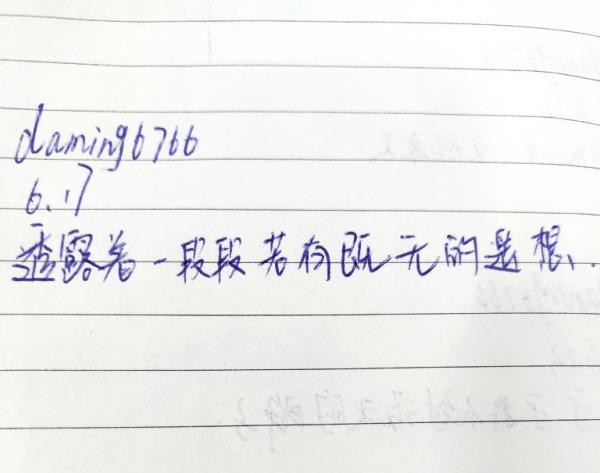 daming6766
6.17
透露着一段段若有既无的是想、